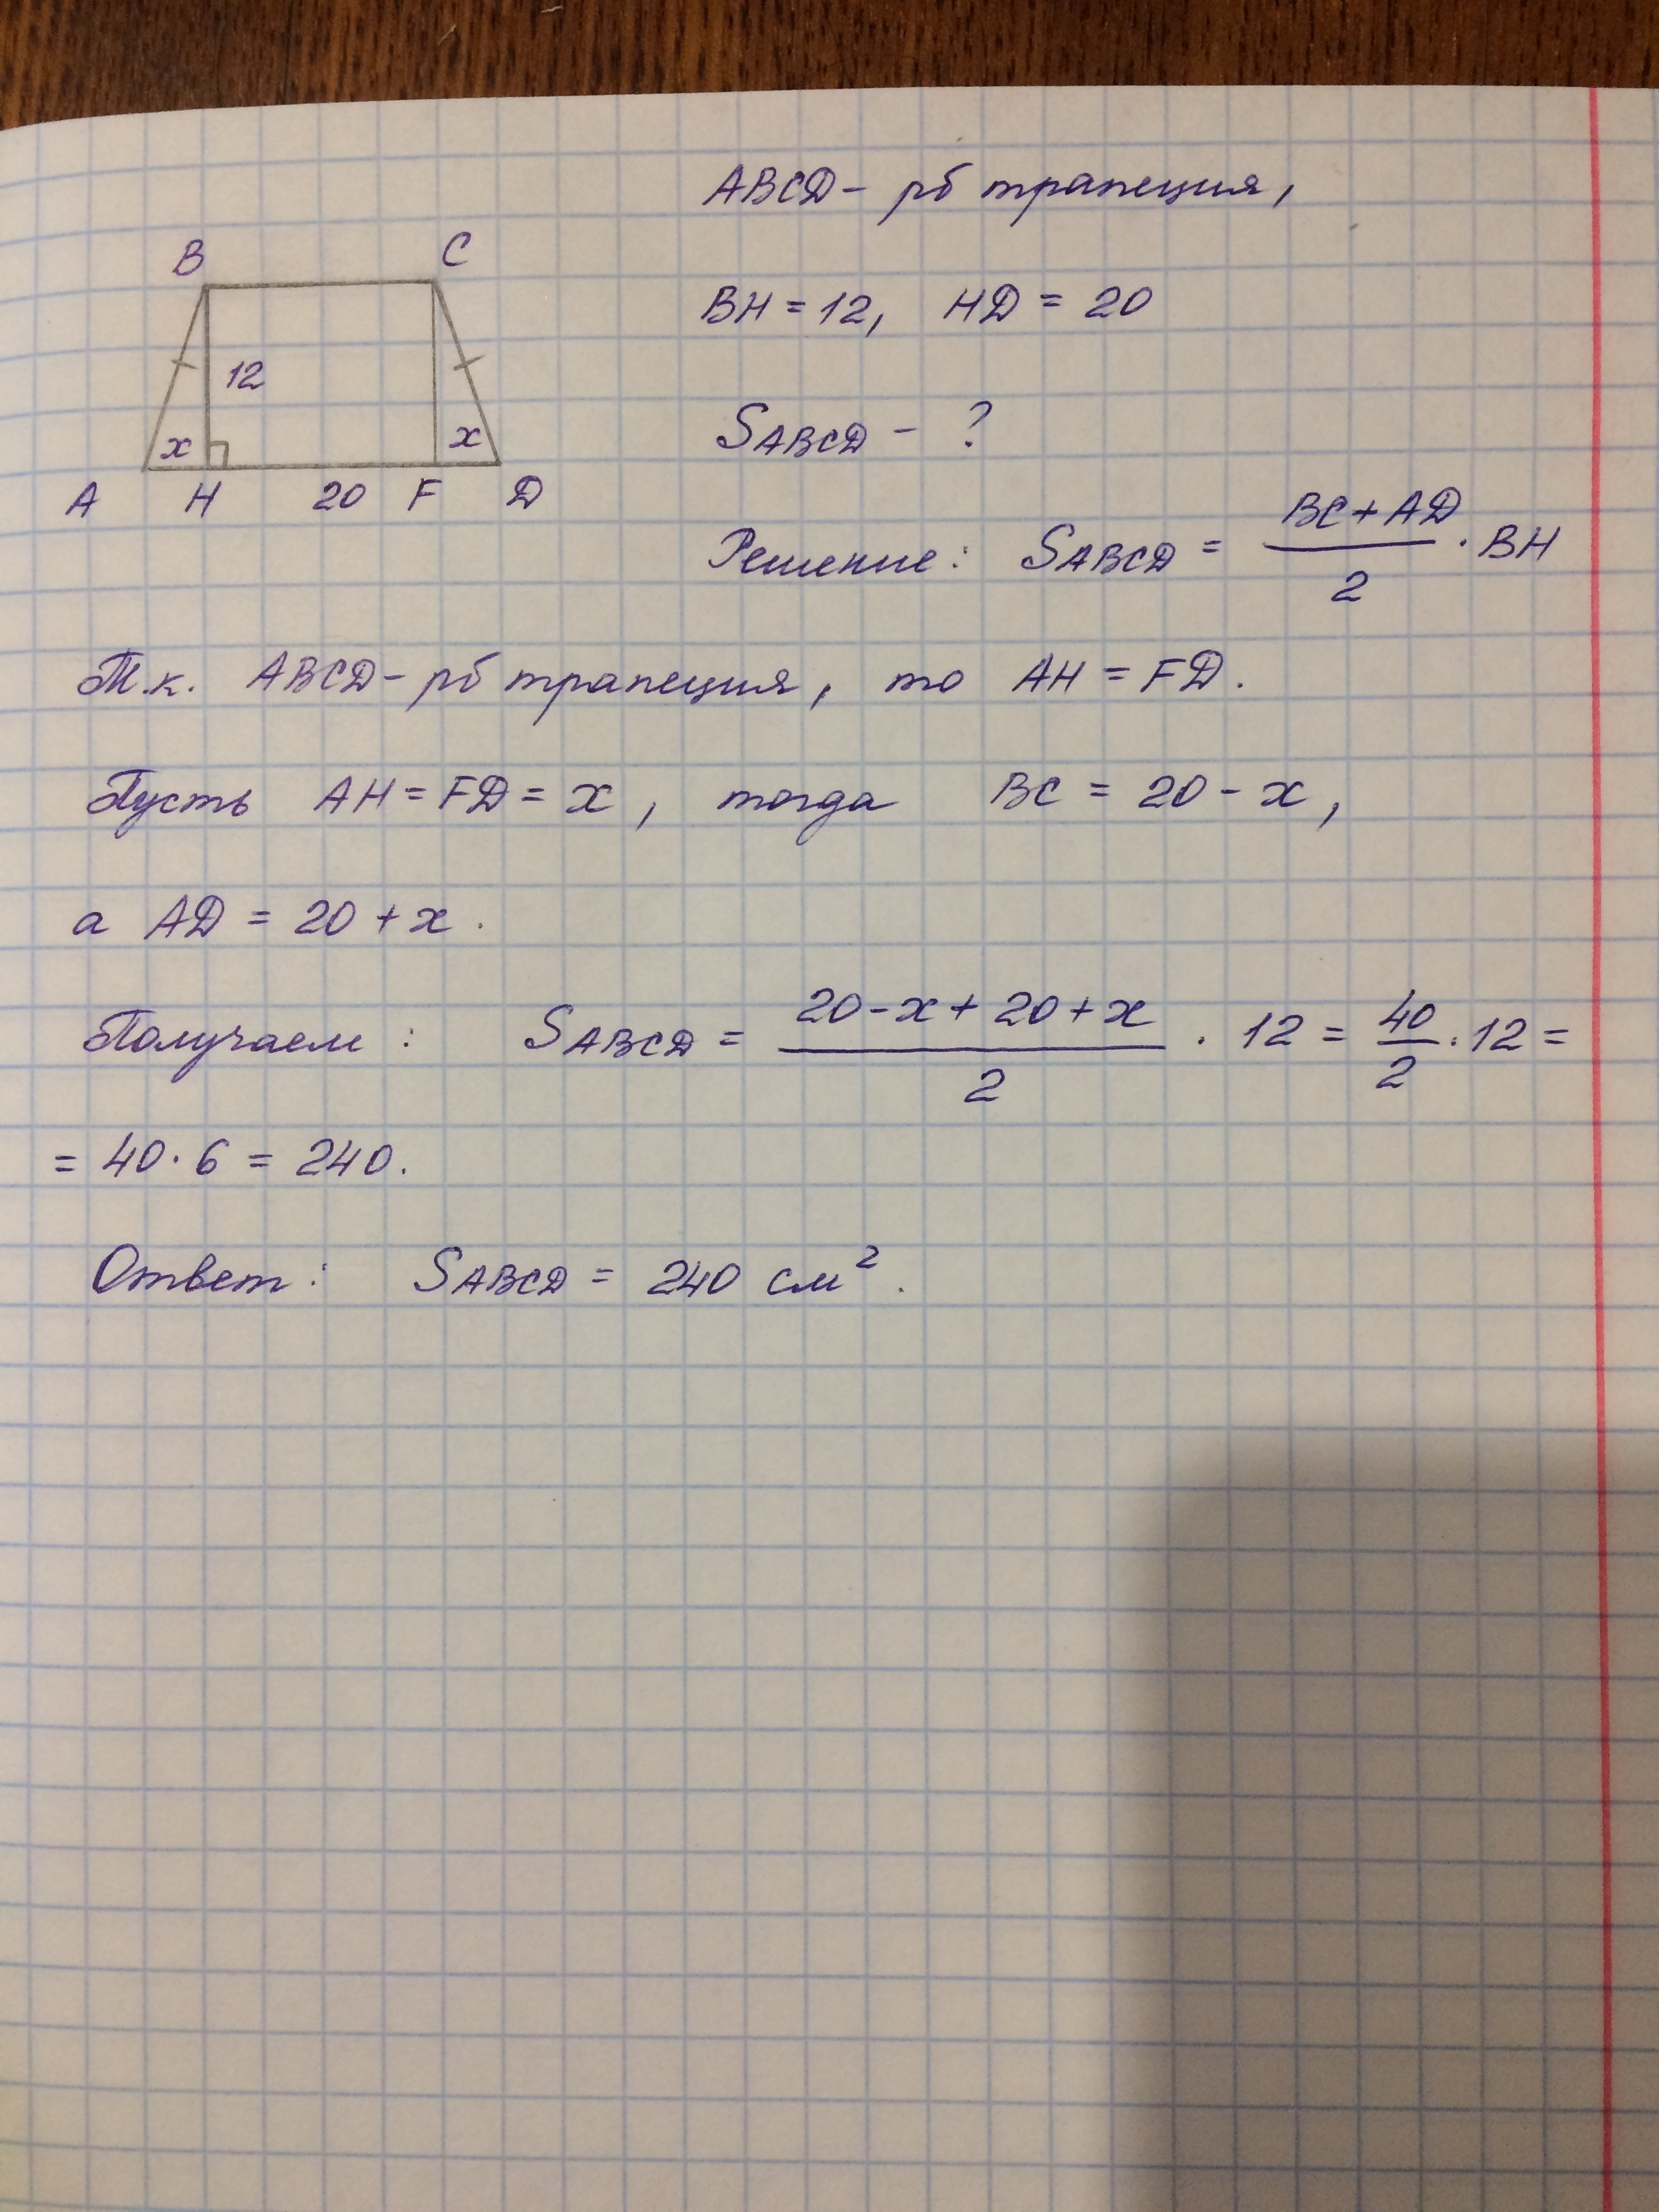 ABCD - рб трапеция,
B C
BH = 12, HD = 20
12
x x
S ABCD - ?
A H 20 F D
Решение: S ABCD = (BC + AD)/2 · BH
Т.к. ABCD - рб трапеция, то AH = FD.
Пусть AH = FD = x, тогда BC = 20 - x,
а AD = 20 + x.
Получаем: S ABCD = (20 - x + 20 + x)/2 · 12 = 40/2 · 12 =
= 40 · 6 = 240.
Ответ: S ABCD = 240 см².